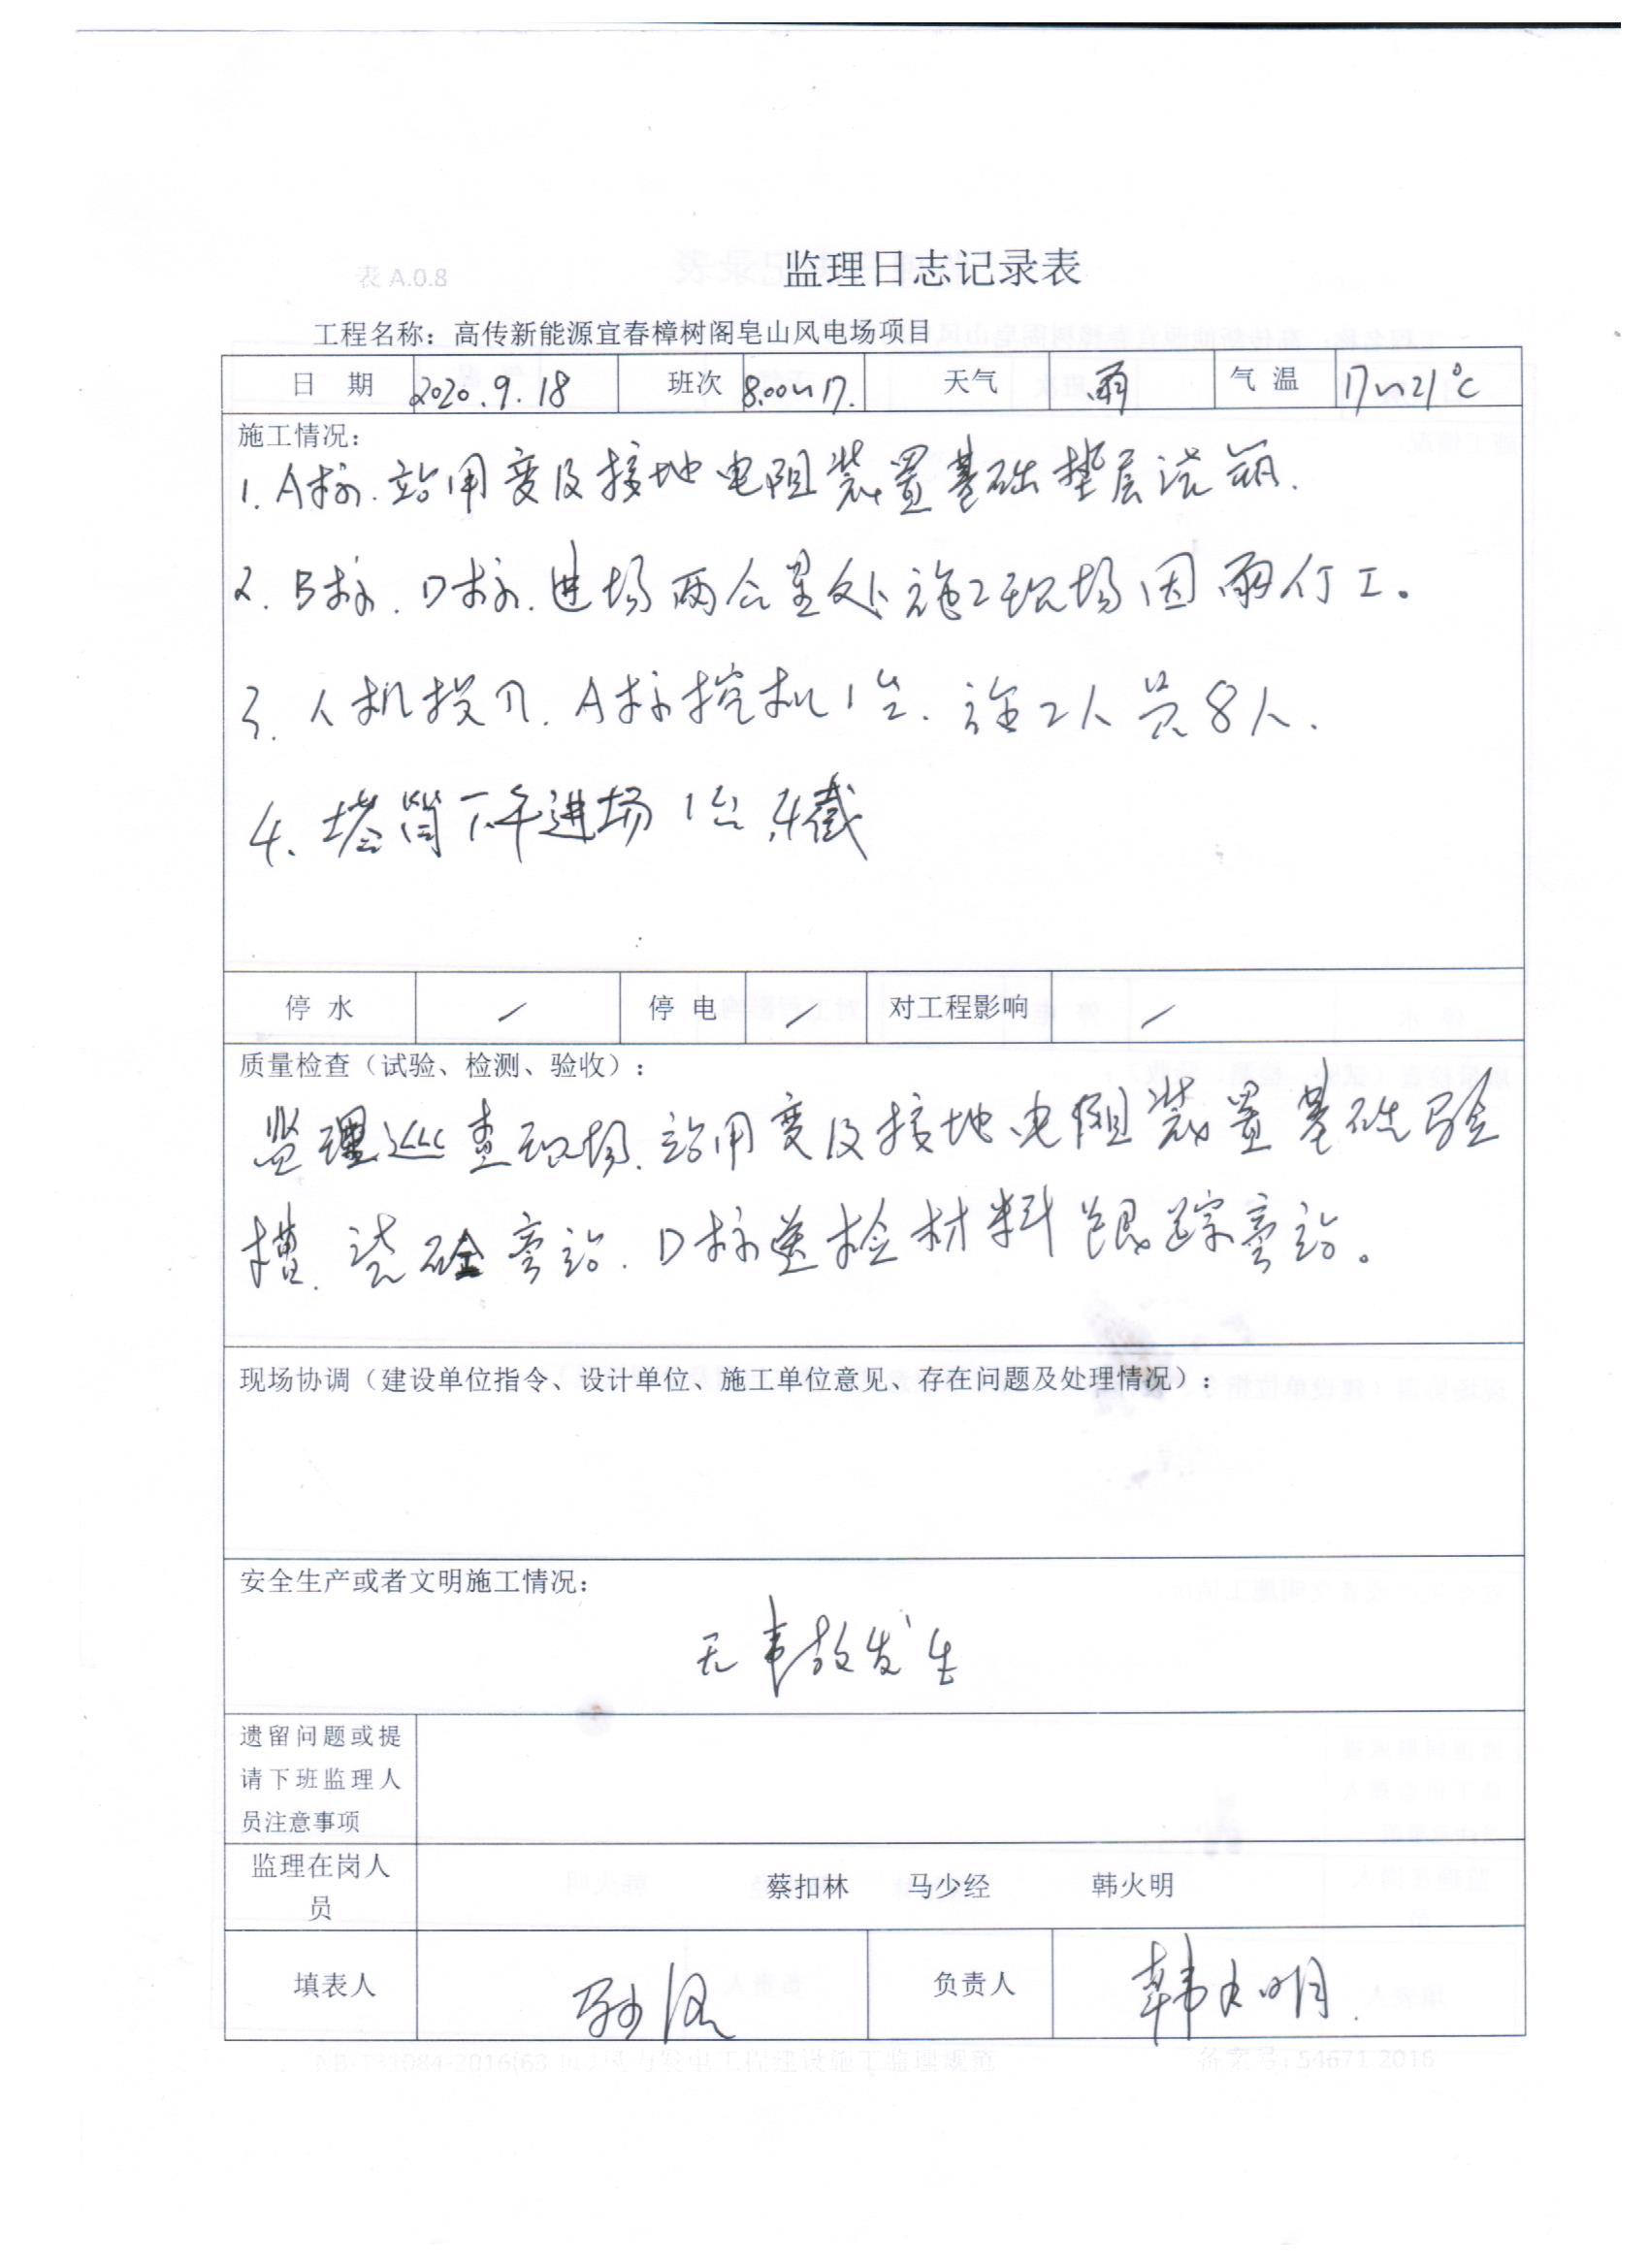 表 A.0.8
监理日志记录表
工程名称：高传新能源宜春樟树阁皂山风电场项目
日 期 2020.9.18 班次 8:00~17. 天气 雨 气 温 17~21℃
施工情况：
1. A标.站用变及接地电阻装置基础垫层浇筑.
2. B标.D标.进场两 处施工现场因雨停工。
3. 人机投入.A标挖机1台.施工人员8人.
4. 塔筒下午进场1台,4截
停 水 / 停 电 / 对工程影响 /
质量检查（试验、检测、验收）：
监理巡查现场.站用变及接地电阻装置基础验
槽.浇砼旁站.D标送检材料跟踪旁站。
现场协调（建设单位指令、设计单位、施工单位意见、存在问题及处理情况）：
安全生产或者文明施工情况：
无事故发生
遗留问题或提
请下班监理人
员注意事项
监理在岗人
员
蔡扣林 马少经 韩火明
填表人 负责人 韩火明